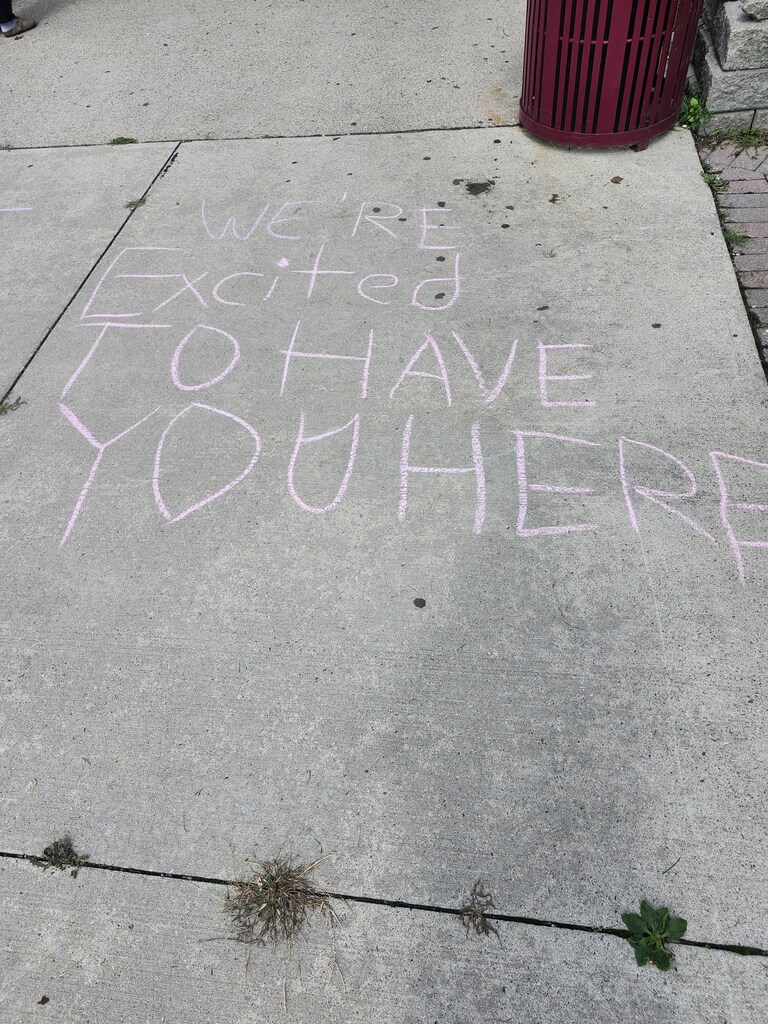 WE'RE
Excited
TO HAVE
YOU HERE